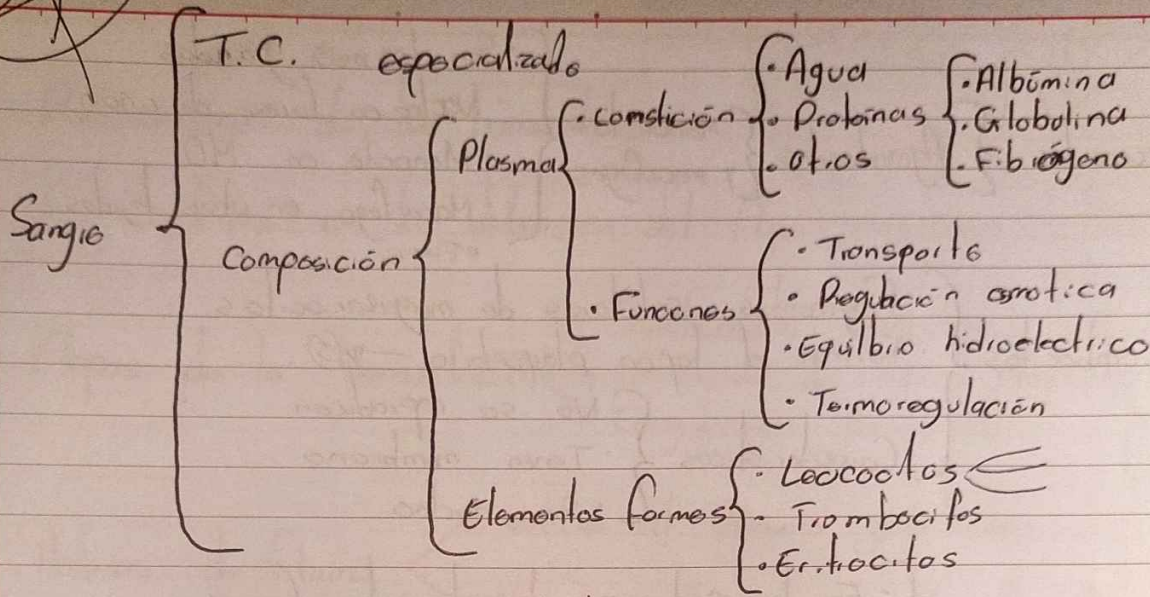 Sangre
T.C. especializado
Composición
Plasma
• Comstición
• Agua
• Proteínas
• Albúmina
• Globulina
• Fibrógeno
• otros
• Funcones
• Transporte
• Regulación osmotica
• Equilbrio hidroelectrico
• Termoregulación
Elementos formes
• Leococitos
• Trombocitos
• Eritrocitos